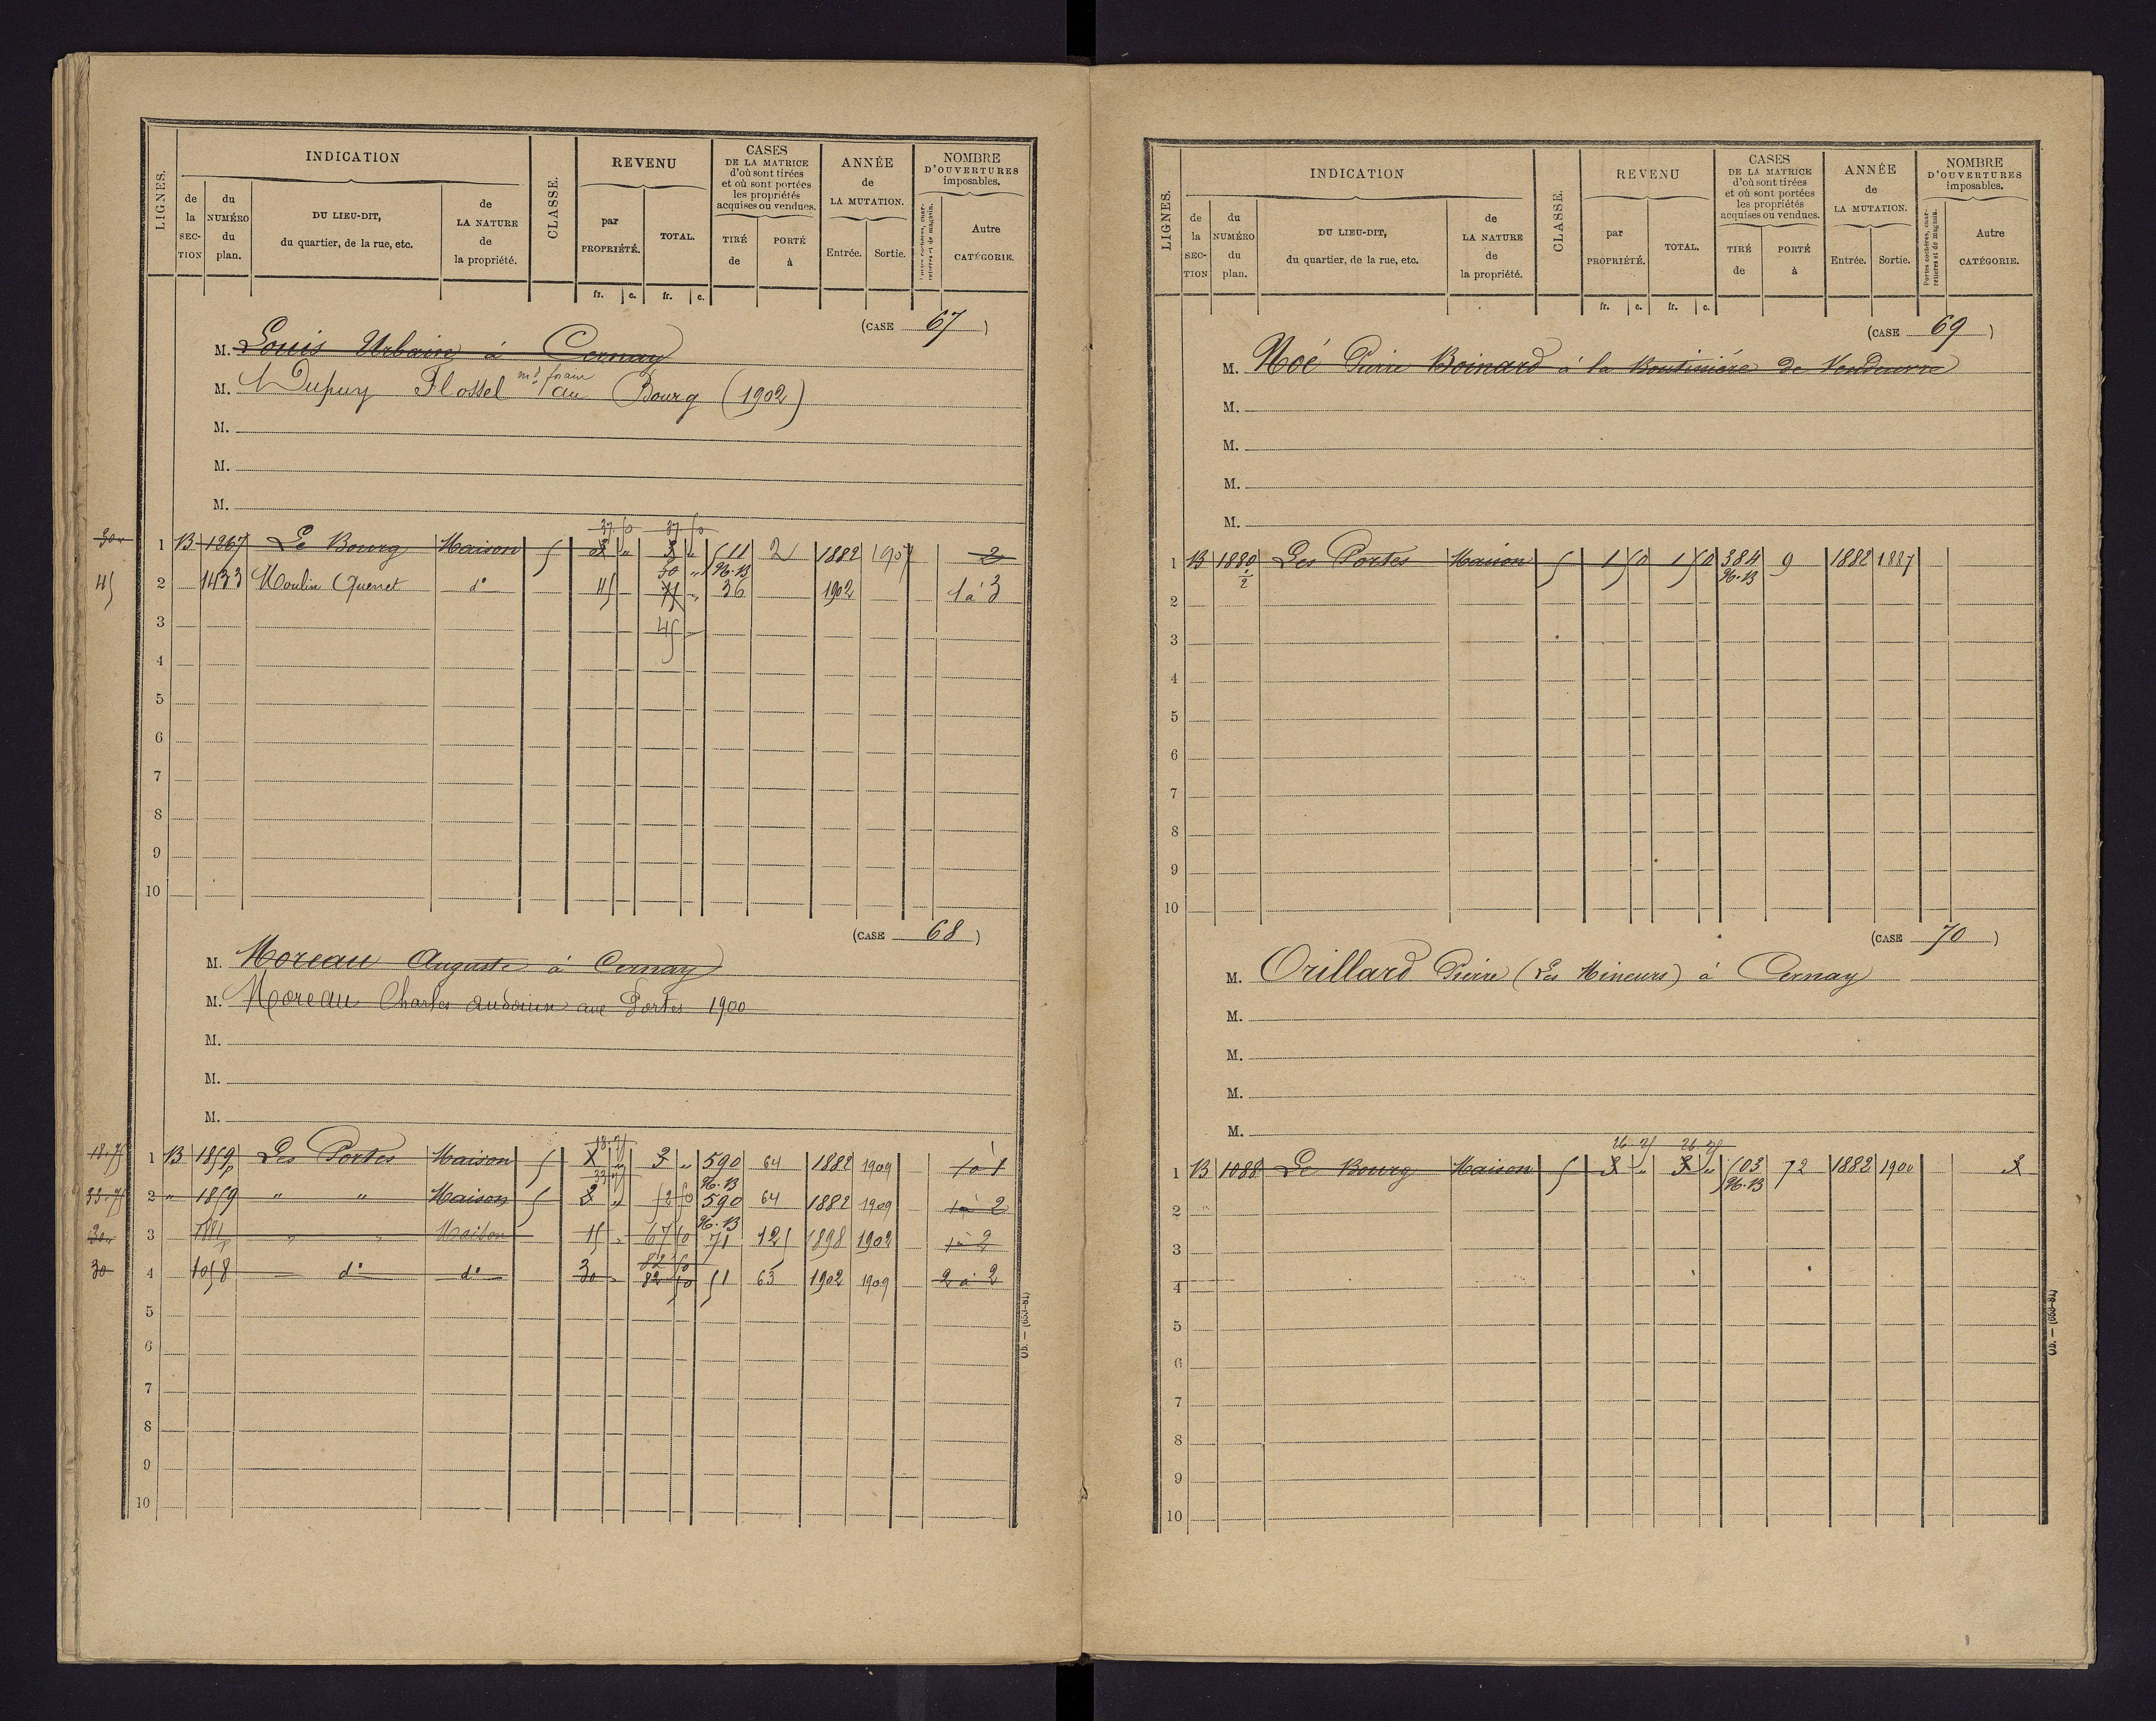 LIGNES.
INDICATION
de la SECTION
du NUMÉRO du plan.
DU LIEU-DIT, du quartier, de la rue, etc.
de LA NATURE de la propriété.
CLASSE.
REVENU
par PROPRIÉTÉ.
TOTAL.
fr. c. fr. c.
CASES DE LA MATRICE d'où sont tirées et où sont portées les propriétés acquises ou vendues.
TIRÉ de
PORTÉ à
ANNÉE de LA MUTATION.
Entrée. Sortie.
NOMBRE D'OUVERTURES imposables.
Portes cochères, charretières et de magasin.
Autre CATÉGORIE.
(CASE 67)
M. Louis Urbain à Cernay
M. Dupuy Flossel md forain au Bourg (1902)
M.
M.
M.
37 50 37 50
30 1 B 1267 Le Bourg Maison 5 3 " 3 " 511 2 1882 1907 2
30 " 96.B
45 2 1433 Moulin Quenet do 45 75 " 36 1902 1 à 3
3 45
4
5
6
7
8
9
10
(CASE 68)
M. Moreau Auguste à Cernay
M. Moreau Charles audouin aux Portes 1900
M.
M.
M.
18.75
18.75 1 B 1859p Les Portes Maison 5 3 " 590 64 1882 1909 1 à 1
33.75 96.B
33.75 2 " 1859 " " Maison 5 3 " 52 50 590 64 1882 1909 1 à 2
96.B
30 " 3 " " Maison 15 " 67 50 71 125 1898 1902 1 à 2
82 50
30 4 1058 do do 30 " 82 50 51 63 1902 1909 2 à 2
5
6
7
8
9
10
Ob. — (653-81)
LIGNES.
INDICATION
de la SECTION
du NUMÉRO du plan.
DU LIEU-DIT, du quartier, de la rue, etc.
de LA NATURE de la propriété.
CLASSE.
REVENU
par PROPRIÉTÉ.
TOTAL.
fr. c. fr. c.
CASES DE LA MATRICE d'où sont tirées et où sont portées les propriétés acquises ou vendues.
TIRÉ de
PORTÉ à
ANNÉE de LA MUTATION.
Entrée. Sortie.
NOMBRE D'OUVERTURES imposables.
Portes cochères, charretières et de magasin.
Autre CATÉGORIE.
(CASE 69)
M. Noé Pierre Boinard à la Boutinière de Vendeuvre
M.
M.
M.
M.
1 B 1880 Les Portes Maison 5 1 50 1 50 384 9 1882 1887
1/2 96.B
2
3
4
5
6
7
8
9
10
(CASE 70)
M. Orillard Pierre (Les Mineurs) à Cernay
M.
M.
M.
M.
26.25 26.25
1 B 1088 Le Bourg Maison 5 3 " 3 " 603 72 1882 1900 3
96.B
2
3
4
5
6
7
8
9
10
Ob. — (653-81)